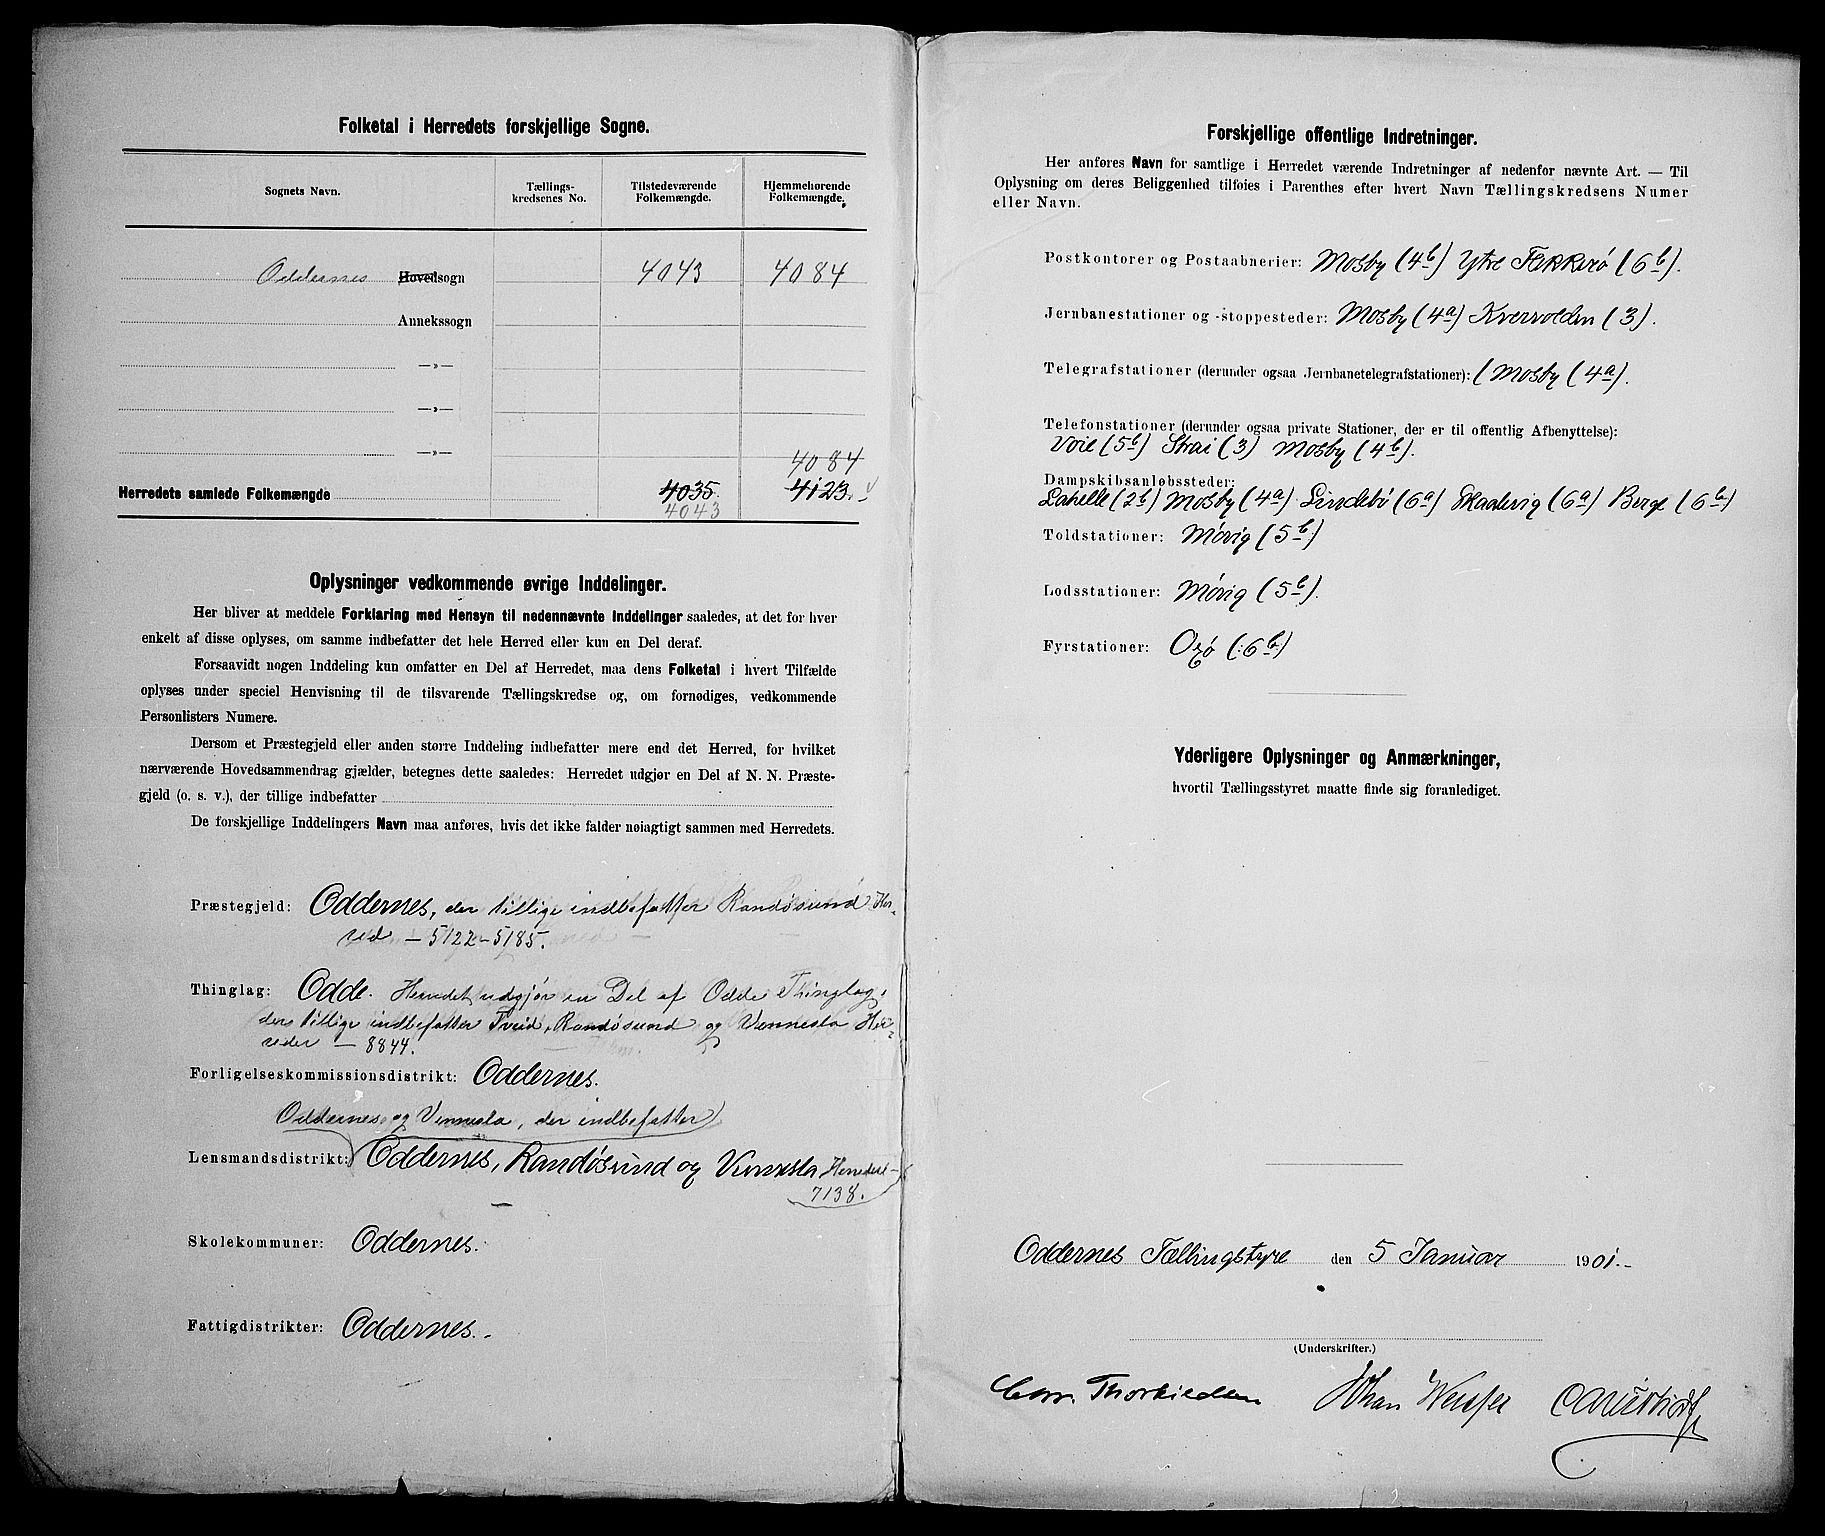 Folketal i Herredets forskjellige Sogne.
Sognets Navn. Tællings-kredsenes No. Tilstedeværende Folkemængde. Hjemmehørende Folkemængde.
Oddernes Hovedsogn 4043 4084
Annekssogn
—»—
—»—
—»— 4084
Herredets samlede Folkemængde 4035. 4123.
4043
Oplysninger vedkommende øvrige Inddelinger.
Her bliver at meddele Forklaring med Hensyn til nedennævnte Inddelinger saaledes, at det for hver
enkelt af disse oplyses, om samme indbefatter det hele Herred eller kun en Del deraf.
Forsaavidt nogen Inddeling kun omfatter en Del af Herredet, maa dens Folketal i hvert Tilfælde
oplyses under speciel Henvisning til de tilsvarende Tællingskredse og, om fornødiges, vedkommende
Personlisters Numere.
Dersom et Præstegjeld eller anden større Inddeling indbefatter mere end det Herred, for hvilket
nærværende Hovedsammendrag gjælder, betegnes dette saaledes: Herredet udgjør en Del af N. N. Præste-
gjeld (o. s. v.), der tillige indbefatter
De forskjellige Inddelingers Navn maa anføres, hvis det ikke falder nøiagtigt sammen med Herredets.
Præstegjeld: Oddernes, der tillige indbefatter Randøsund Her-
red — 5122 – 5185.
Thinglag: Odde. Herredet udgjør en Del af Odde Thinglag,
der tillige indbefatter Tveid, Randøsund og Vennesla Her-
reder — 8844.
Forligelseskommissionsdistrikt: Oddernes.
Oddernes og Vennesla, der indbefatter
Lensmandsdistrikt: Oddernes, Randøsund og Vennesla Herreder —
7138.
Skolekommuner: Oddernes.
Fattigdistrikter: Oddernes.
Forskjellige offentlige Indretninger.
Her anføres Navn for samtlige i Herredet værende Indretninger af nedenfor nævnte Art. — Til
Oplysning om deres Beliggenhed tilføies i Parenthes efter hvert Navn Tællingskredsens Numer
eller Navn.
Postkontorer og Postaabnerier: Mosby (4b) Ytre Flekkerø (6b).
Jernbanestationer og -stoppesteder: Mosby (4a) Kvervolden (3).
Telegrafstationer (derunder ogsaa Jernbanetelegrafstationer): (Mosby (4a).
Telefonstationer (derunder ogsaa private Stationer, der er til offentlig Afbenyttelse):
Voie (5b) Strai (3) Mosby (4b).
Dampskibsanløbssteder:
Lahelle (2b) Mosby (4a) Lindebø (6a) Skaalevig (6a) Berge (6b)
Toldstationer: Møvig (5b)
Lodsstationer: Møvig (5b).
Fyrstationer: Oxø (:6b)
Yderligere Oplysninger og Anmærkninger,
hvortil Tællingsstyret maatte finde sig foranlediget.
Oddernes Tællingstyre den 5 Januar 1901.
(Underskrifter.)
Thorkildsen Johan